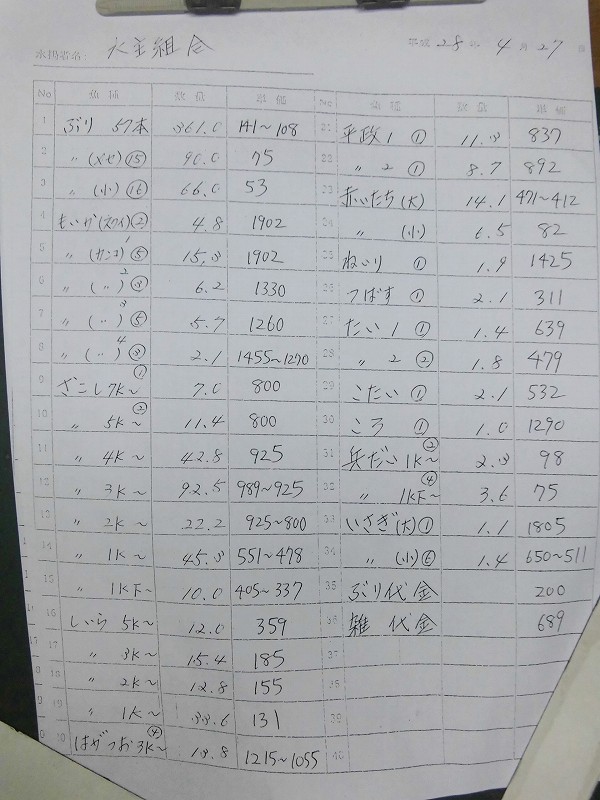 水揚者名 永幸組合 平成 28年 4月 27日
No 魚種 数量 単価
1 ぶり 57本 361.0 141~108
2 〃 (メセ) ⑮ 90.0 75
3 〃 (小) ⑯ 66.0 53
4 もいか(スワイ)② 4.8 1902
5 〃 (カンコ)1 ⑤ 15.3 1902
6 〃 (〃)2 ③ 6.2 1330
7 〃 (〃)3 ⑤ 5.7 1260
8 〃 (〃)4 ③ 2.1 1455~1270
9 ざごし 7K~ ① 7.0 800
10 〃 5K~ ② 11.4 800
11 〃 4K~ 42.8 925
12 〃 3K~ 92.5 989~925
13 〃 2K~ 22.2 925~800
14 〃 1K~ 45.3 551~478
15 〃 1K下~ 10.0 405~337
16 しいら 5K~ 12.0 359
17 〃 3K~ 15.4 185
18 〃 2K~ 12.8 155
19 〃 1K~ 33.6 131
20 はがつお3K~ ④ 13.8 1215~1055
No 魚種 数量 単価
21 平政1 ① 11.3 837
22 〃 2 ① 8.7 892
23 赤いたち(大) 14.1 471~412
24 〃 (小) 6.5 82
25 ねいり ① 1.9 1425
26 つばす ① 2.1 311
27 たい 1 ① 1.4 639
28 〃 2 ② 1.8 479
29 こたい ① 2.1 532
30 ころ ① 1.0 1290
31 兵だい1K~ ② 2.3 98
32 〃 1K下~ ④ 3.6 75
33 いさぎ(大)① 1.1 1805
34 〃 (小)⑥ 1.4 650~511
35 ぶり代金 200
36 雑 代金 689
37
38
39
40